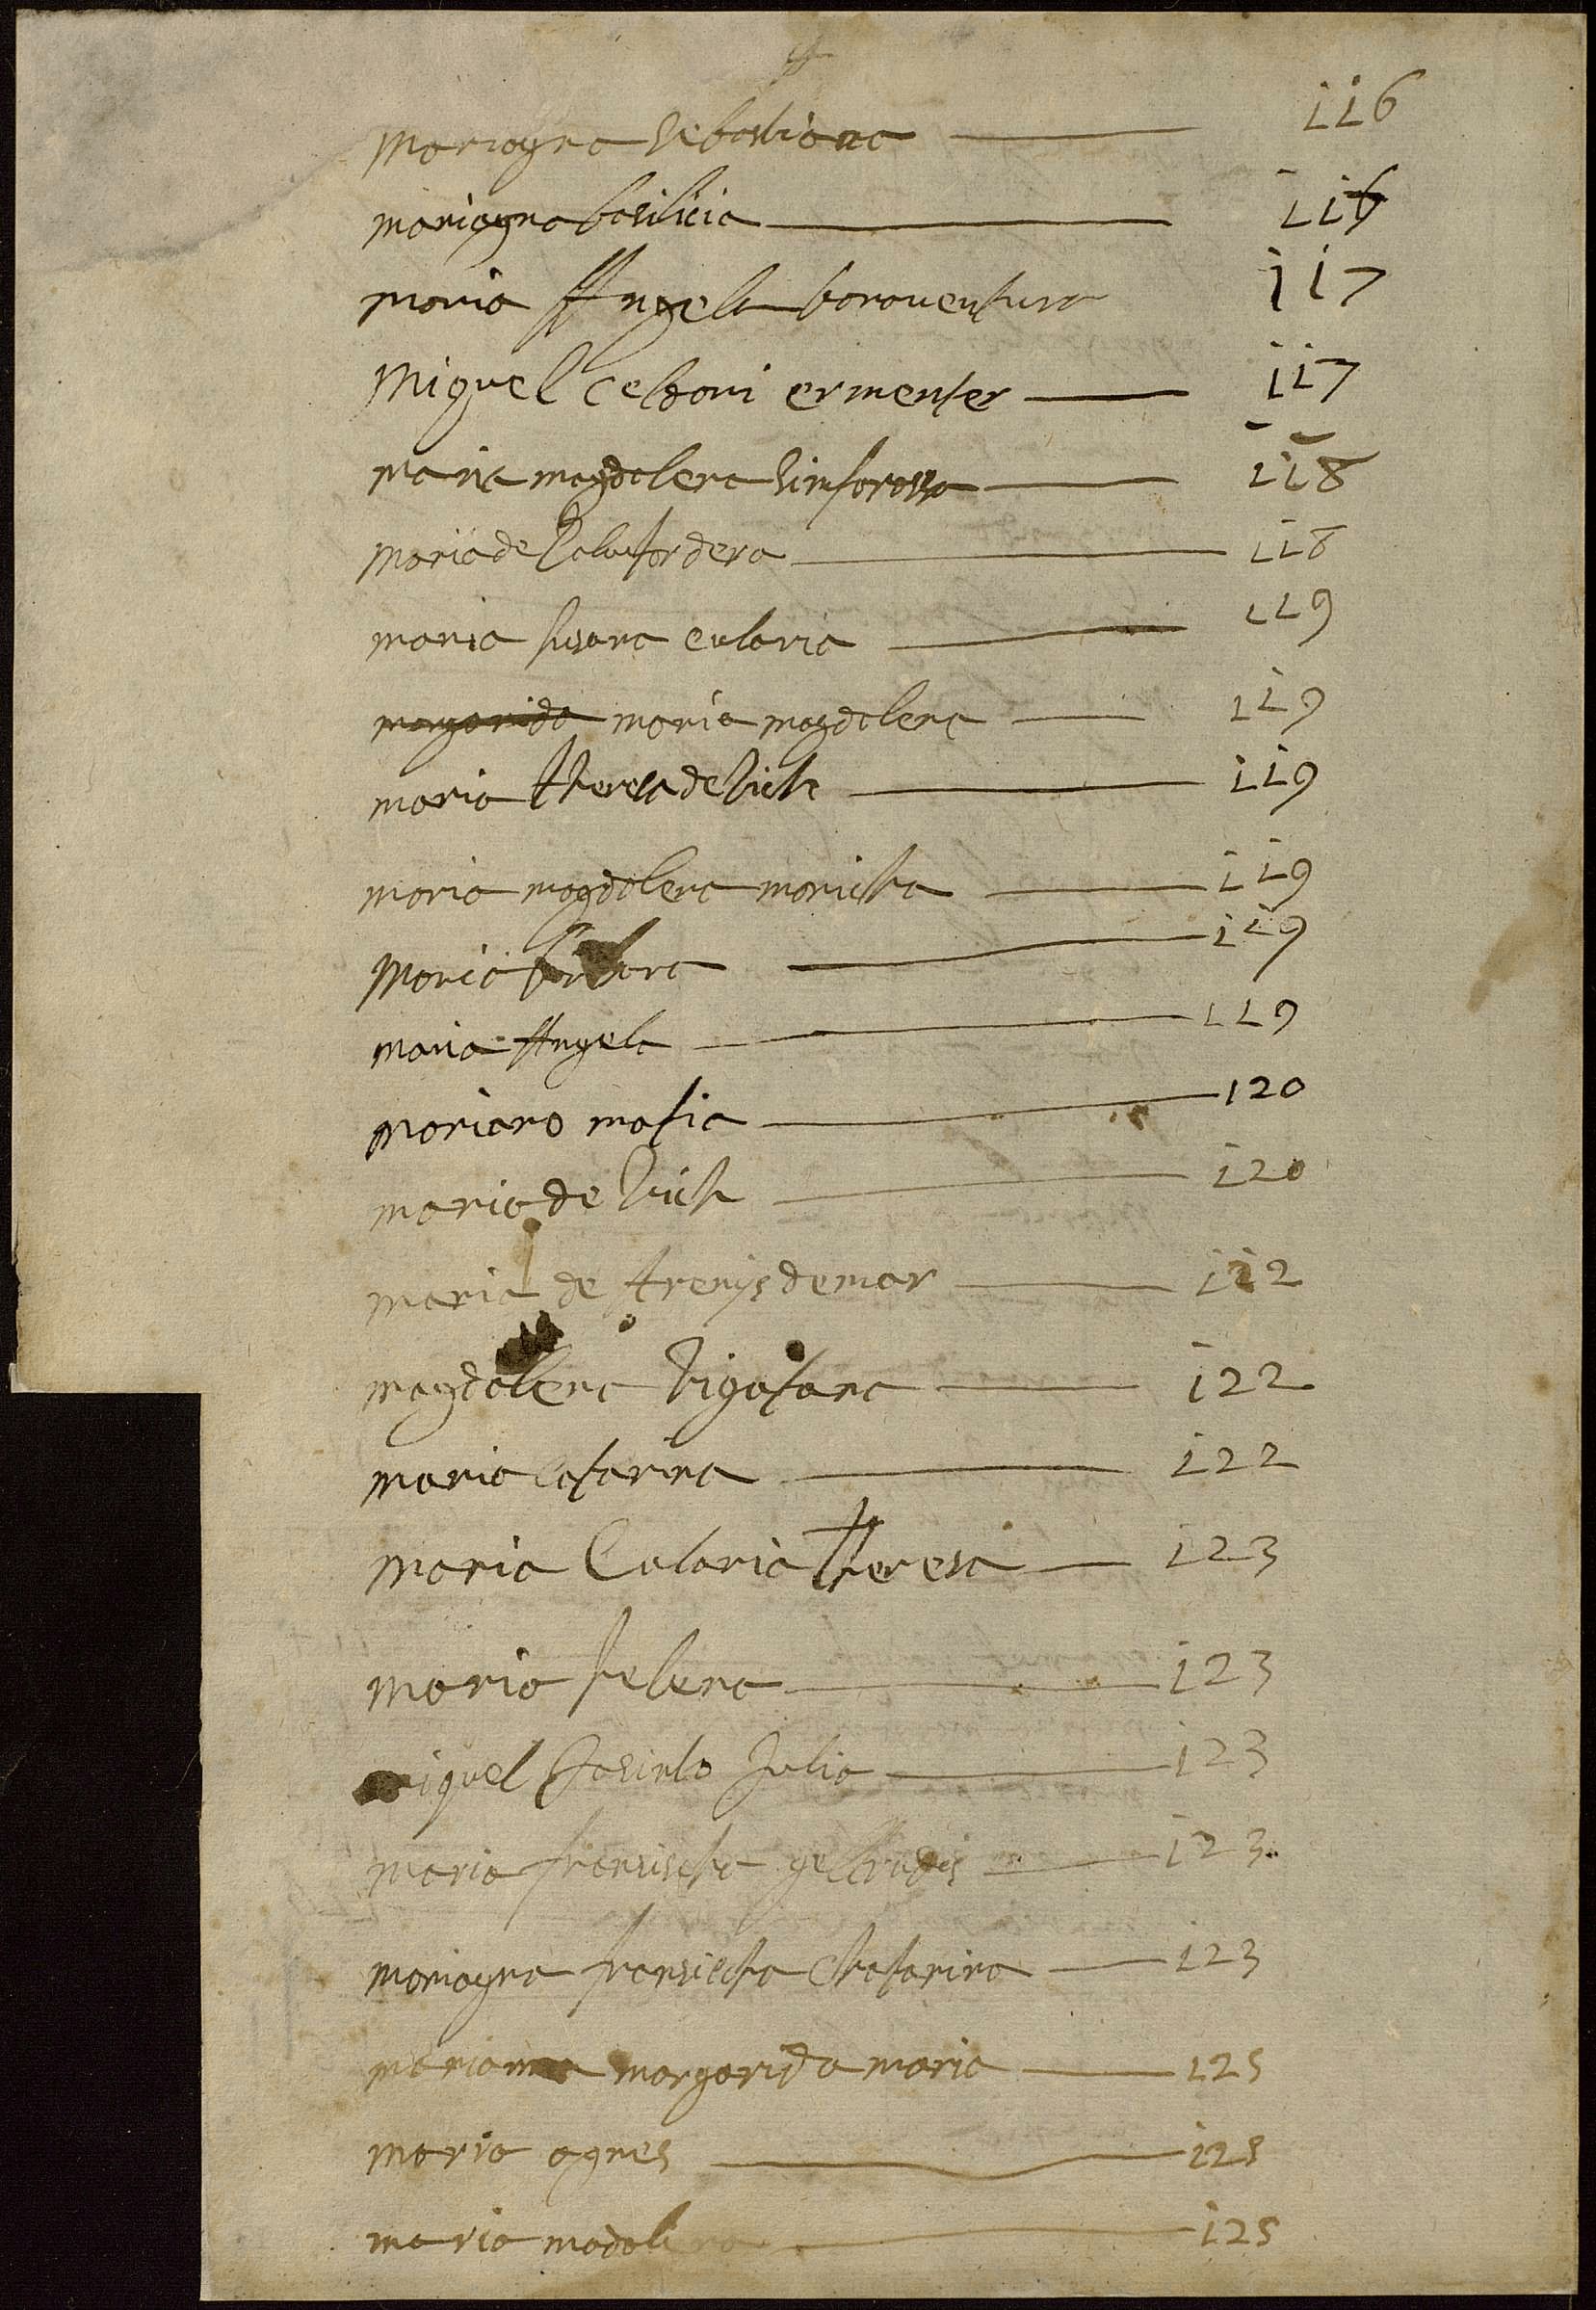 Mariagna Sebastiana 116
mariagna basilicia 116
maria Angela bonaventura 117
Miquel Celdoni ermenter 117
maria magdalena Simforosa 118
maria de Calustordera 118
maria susana eularia 119
margarida maria magdalena 119
maria theresa de Vich 119
maria magdalena maricha 119
Maria barbara 119
maria Angela 119
Mariano matia 120
maria de Vich 120
maria de Arenys de mar 122
magdalena Vigatana 122
maria Catarina 122
maria Eularia Theresa 123
maria helena 123
miquel Jasinto Julia 123
maria fransischa geltrudis 123
mariagna fransischa Chatarina 123
mariana margarida maria 125
maria agnes 125
maria madalena 125